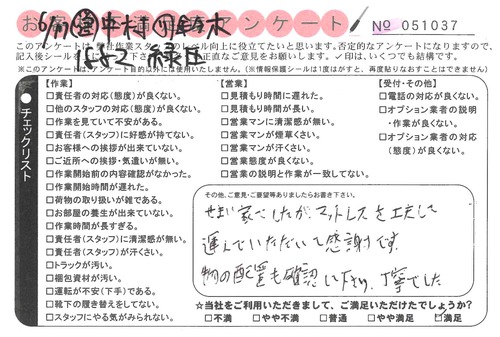 お客様アンケート
No 051037
このアンケートは、弊社作業スタッフのレベル向上に役立てたいと思います。否定的なアンケートになりますので、
記入後シールを 正直なご意見をお願いします。✓印は、いくつでも結構です。
※このアンケートは、アンケート目的以外には使用いたしません。(※情報保護シールは1度はがすと、再度貼りなおすことはできません)
チェックリスト
【作業】
□責任者の対応(態度)が良くない。
□他のスタッフの対応(態度)が良くない。
□作業を見ていて不安がある。
□責任者(スタッフ)に好感が持てない。
□お客様への挨拶が出来ていない。
□ご近所への挨拶・気遣いが無い。
□作業開始前の内容確認がなかった。
□作業開始時間が遅れた。
□荷物の取り扱いが雑である。
□お部屋の養生が出来ていない。
□作業時間が長すぎる。
□責任者(スタッフ)に清潔感が無い。
□責任者(スタッフ)が汗くさい。
□トラックが汚い。
□梱包資材が汚い。
□運転が不安(下手)である。
□靴下の履き替えをしてない。
□スタッフにやる気がみられない。
【営業】
□見積もり時間に遅れた。
□見積もり時間が長い。
□営業マンに清潔感が無い。
□営業マンが煙草くさい。
□営業マンが汗くさい。
□営業態度が良くない。
□営業の説明と作業が一致してない。
【受付・その他】
□電話の対応が良くない。
□オプション業者の説明
・作業が良くない。
□オプション業者の対応
(態度)が良くない。
その他、ご意見・ご要望等ありましたらお書き下さい。
せまい家でしたが、マットレスを工夫して
運んでいただいて感謝です。
物の配置も確認し下さり、丁寧でした
☆当社をご利用いただきまして、ご満足いただけたでしょうか?
□不満 □やや不満 □普通 □やや満足 ☑満足